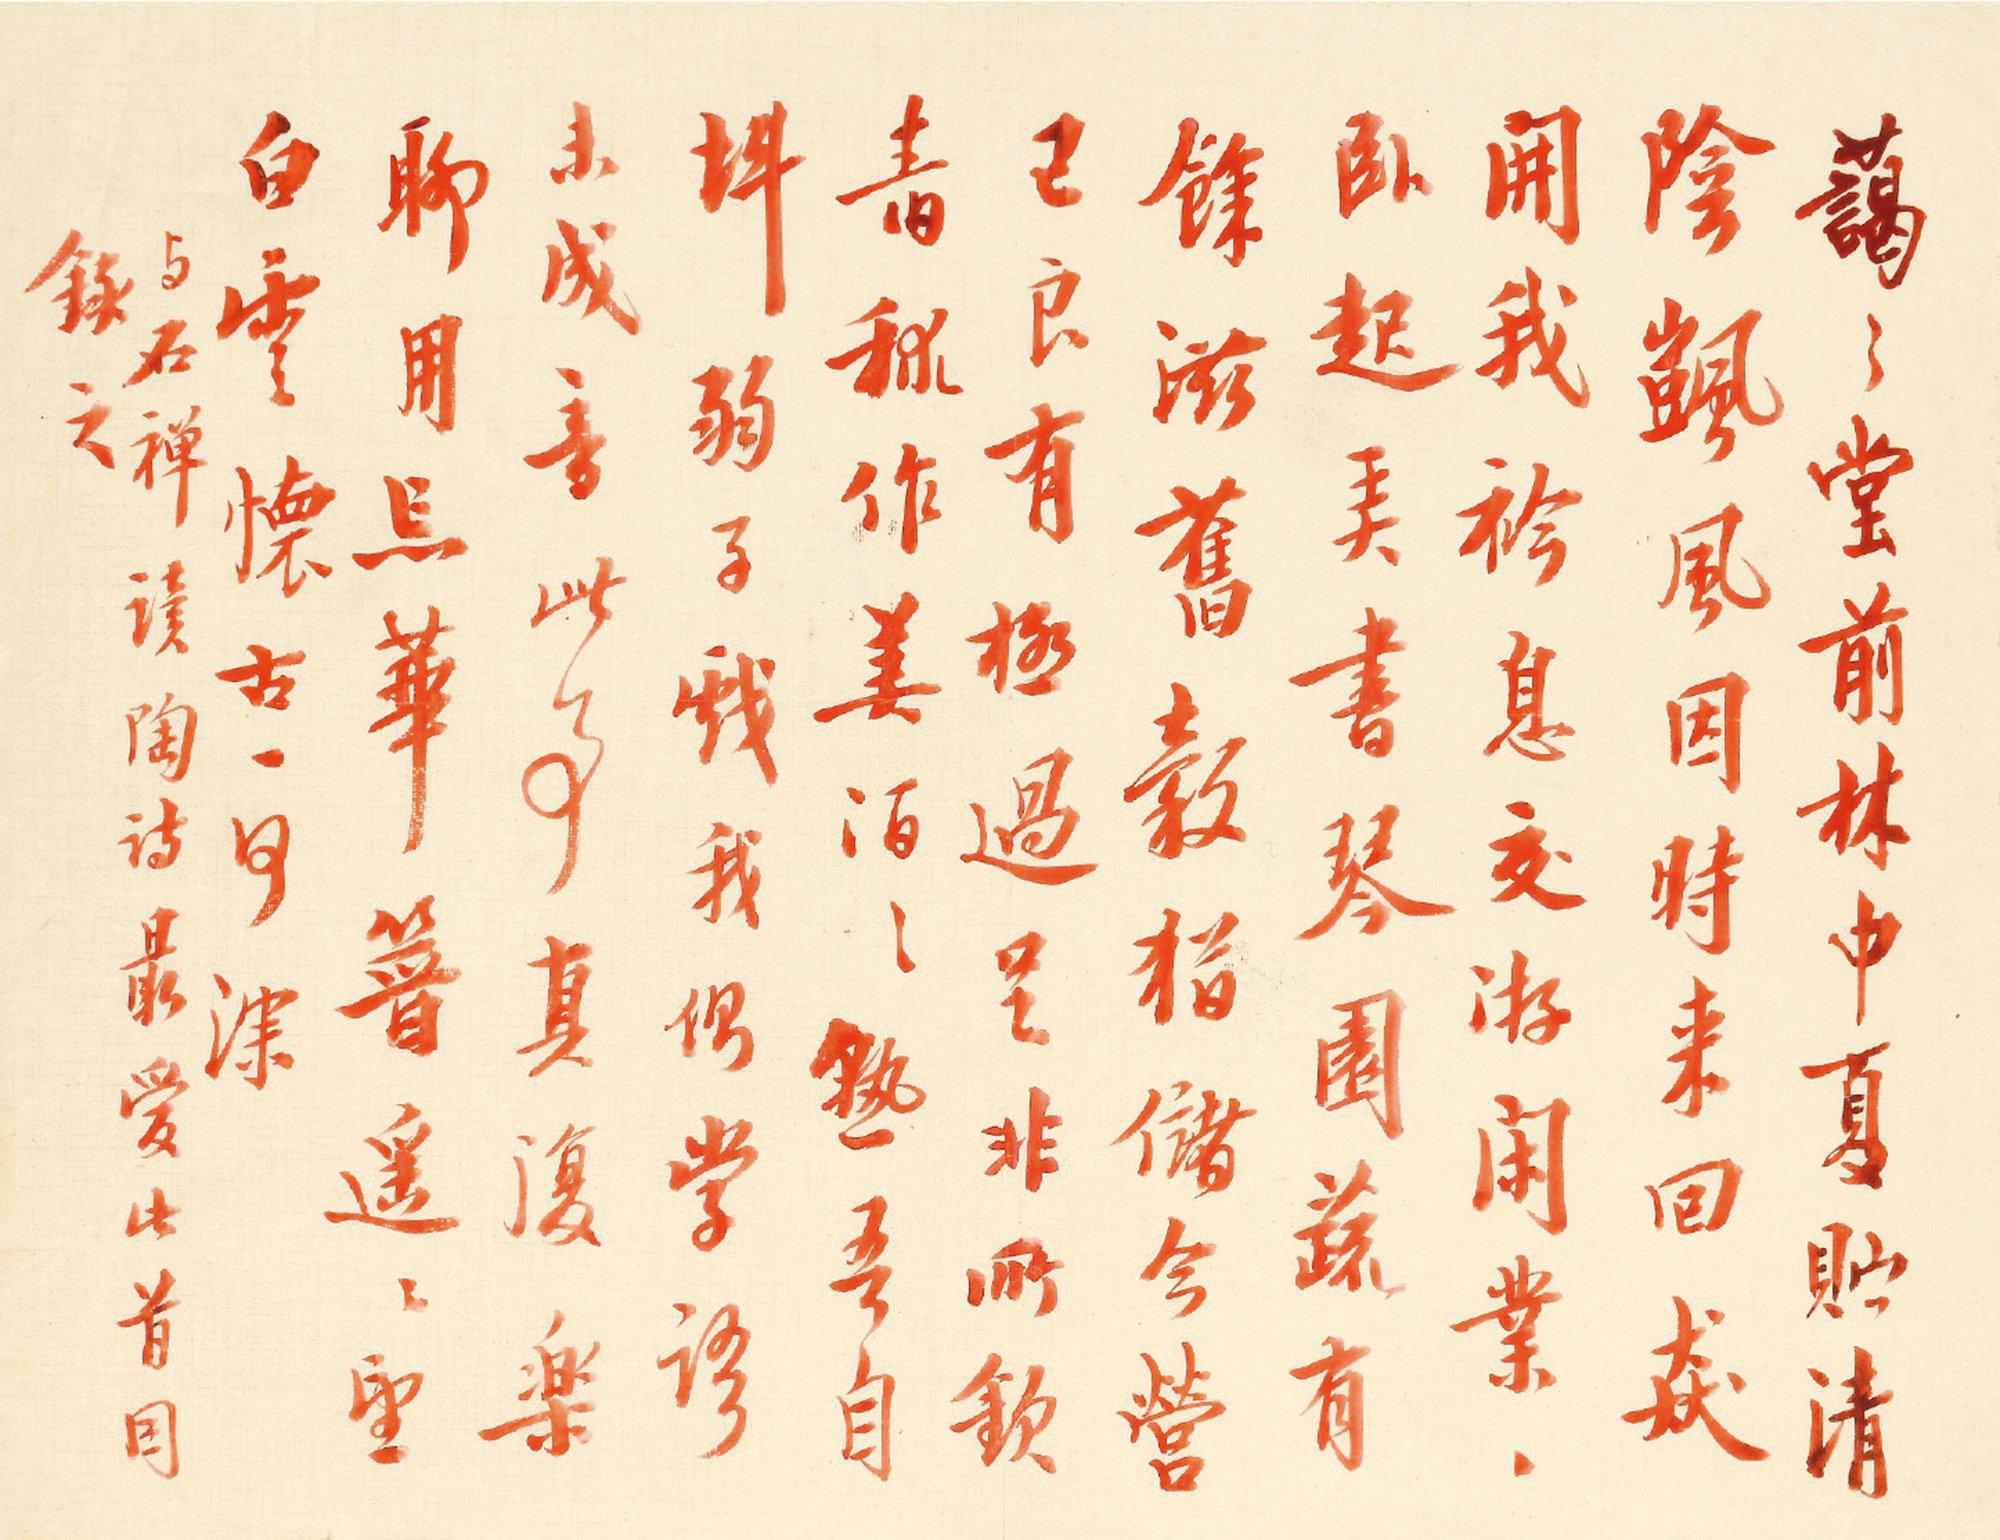 藹〻堂前林中夏貯清
陰颽風因時来回猋
開我衿息交游閑業、
卧起弄書琴園蔬有
餘滋舊穀猶儲今營
己良有極過足非所欽
舂秫作美酒〻熟吾自
斟弱子戲我側學語
未成音此事真復樂
聊用忘華簪遥〻望
白雲懷古一何深
与石禅讀陶詩最愛此首因
録之